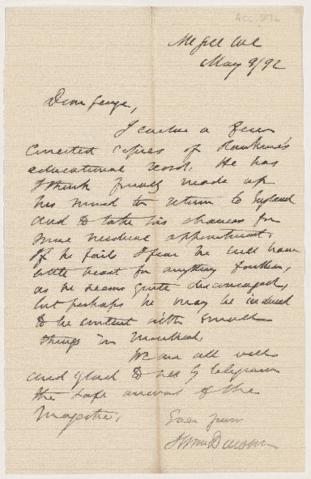 McGill Col
May 9/92
Dear George,
I enclose a few
corrected copies of Rankine's
educational record. He has
I think finally made up
his mind to return to England
and to take his chances for
some medical appointment.
If he fails I fear he will have
little heart for anything further,
as he seems quite discouraged,
but perhaps he may be induced
to be content with small
things in Montreal.
We are all well
and glad to see by telegram
the safe arrival of the
Majestic.
Ever yours
J Wm Dawson